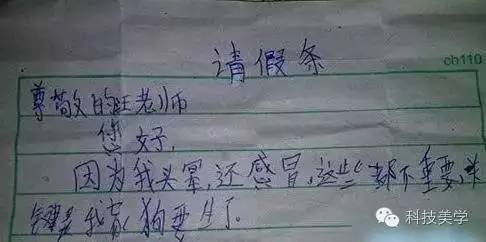 请假条
ch110
尊敬的汪老师
您好,
因为我头晕,还感冒,这些都不重要,关
键是我家狗要生了.
科技美学